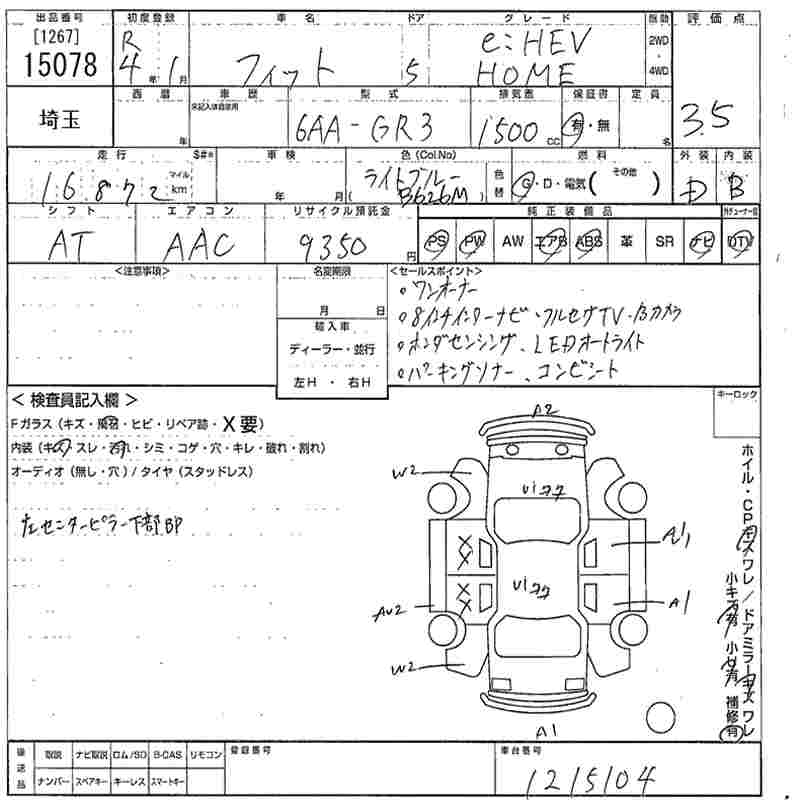 出品番号 初度登録 車名 ドア グレード 駆動 評価点
[1267] R 2WD
15078 4年 1月 フィット 5 e:HEV HOME ・4WD 3.5
埼玉 西暦 年 車歴 未記入は自家用 型式 排気量 保証書 定員
6AA-GR3 1500cc 有・無 名
走行 S#* 車検 色(Col.No) 燃料 外装 内装
16872 マイル km 年 月 ライトブルー (B626M) 色替 G・D・電気( その他 ) D B
シフト エアコン リサイクル預託金 純正装備品
AT AAC 9350円 PS PW AW エアB ABS 革 SR ナビ DTV
<注意事項> 名変期限 <セールスポイント>
月 日
輸入車
ディーラー・並行
左H・右H
◦ワンオーナー
◦8インチインターナビ・フルセグTV・Bカメラ
◦ホンダセンシング、LEDオートライト
◦パーキングソナー、コンビシート
<検査員記入欄> キーロック
Fガラス(キズ・飛石・ヒビ・リペア跡・X要)
内装(キズ・スレ・汚れ・シミ・コゲ・穴・キレ・破れ・割れ)
オーディオ(無し・穴)/タイヤ(スタッドレス)
左センターピラー下部BP
A2
W2
XX
A1
XX
AU2
A1
W2
A1
ホイル・CPキズワレ/ドアミラーキズワレ
小キズ有 小凹有 補修有
後送品 取説 ナビ取説 ロム/SD B-CAS リモコン 登録番号 車台番号
ナンバー スペアキー キーレス スマートキー 1215104